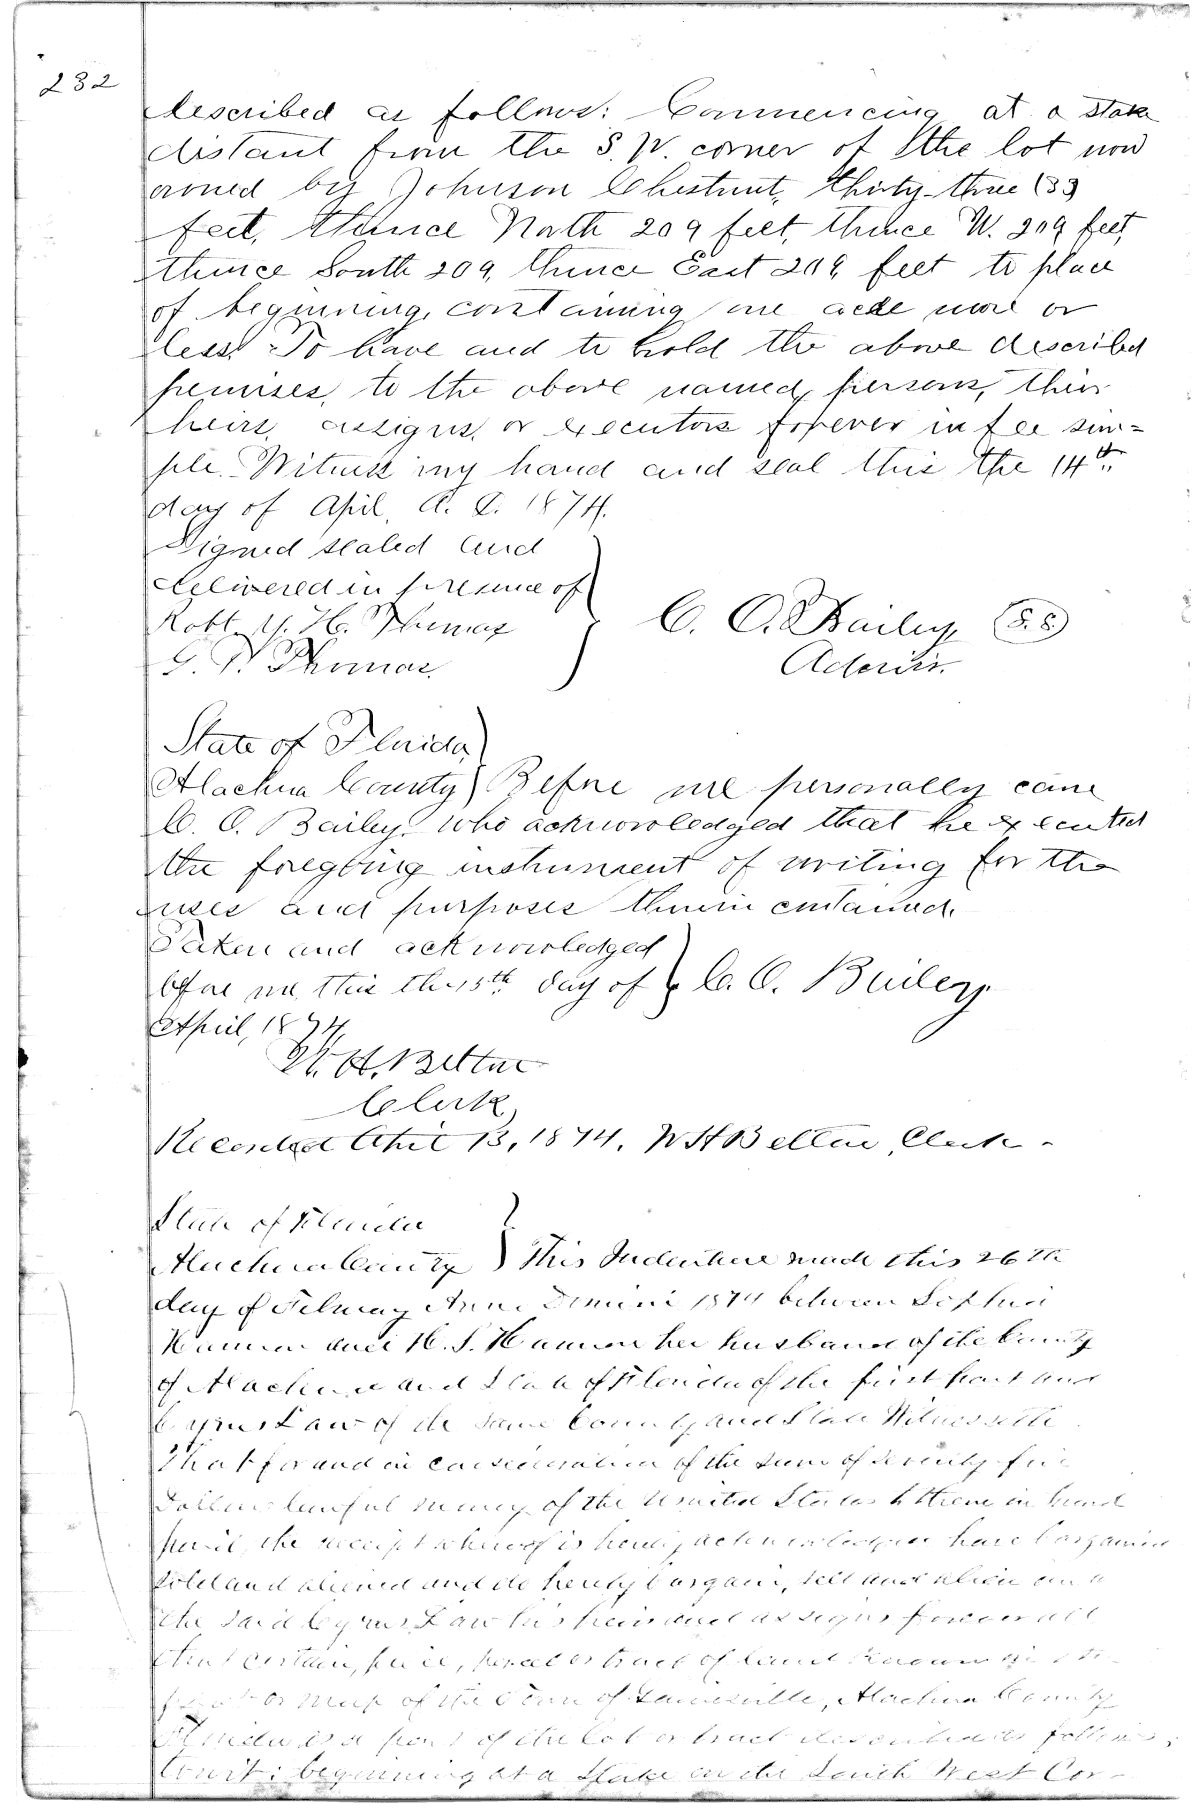 232
described as follows: Commencing at a stake
distant from the S. W. corner of the lot now
owned by Johnson Chestnut, thirty-three (33)
feet, thence North 209 feet, thence W. 209 feet,
thence South 209, thence East 209 feet to place
of beginning, containing one acre more or
less. To have and to hold the above described
premises, to the above named persons, their
heirs, assigns, or executors forever in fee sim=
ple. Witness my hand and seal this the 14th
day of April, A. D. 1874.
Signed sealed and
delivered in presence of
Robt. Y. H. Thomas
G. P. Thomas.
C. O. Bailey, (S. S.)
Admin.
State of Florida,
Alachua County) Before me personally came
C. O. Bailey, who acknowledged that he executed
the foregoing instrument of writing for the
uses and purposes therein contained.
Taken and acknowledged
before me, this the 15th day of
April, 1874,
C. O. Bailey.
W. H. Belton
Clerk,
Recorded April 13, 1874. W H Belton, Clerk.
State of Florida
Alachua County ) This Indenture made this 26th
day of February Anno Domini 1874 between Sophia
and H. S. her husband of the County
of Alachua and State of Florida of the first part and
Cyrus Law of the same County and State Witnesseth
That for and in consideration of the sum of Seventy five
Dollars lawful money of the United States to them in hand
paid, the receipt whereof is hereby acknowledged have bargained
sold and aliened and do hereby bargain, sell and alien
the said Cyrus Law his heirs and assigns forever all
that certain, piece, parcel or tract of land Known
or map of the Town of Gainesville, Alachua County
Florida as a part of the lot or tract described as follows;
to wit: beginning at a Stake on the South West Cor-